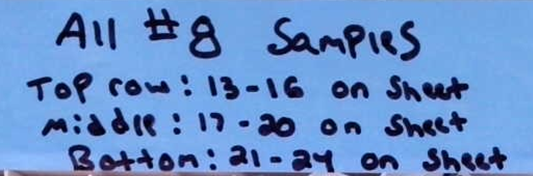 All #8 Samples
Top row: 13-16 on Sheet
Middle: 17-20 on Sheet
Bottom: 21-24 on Sheet